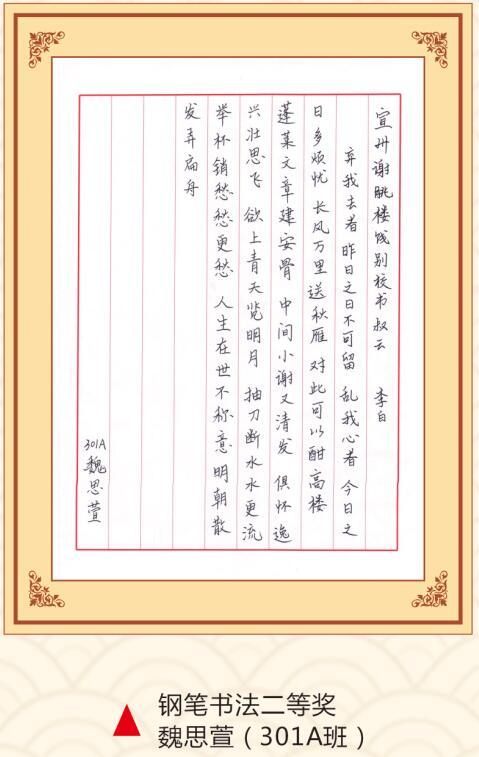 宣州谢朓楼饯别校书叔云 李白
弃我去者 昨日之日不可留 乱我心者 今日之
日多烦忧 长风万里送秋雁 对此可以酣高楼
蓬莱文章建安骨 中间小谢又清发 俱怀逸
兴壮思飞 欲上青天览明月 抽刀断水水更流
举杯销愁愁更愁 人生在世不称意 明朝散
发弄扁舟
301A 魏思萱
钢笔书法二等奖
魏思萱（301A班）